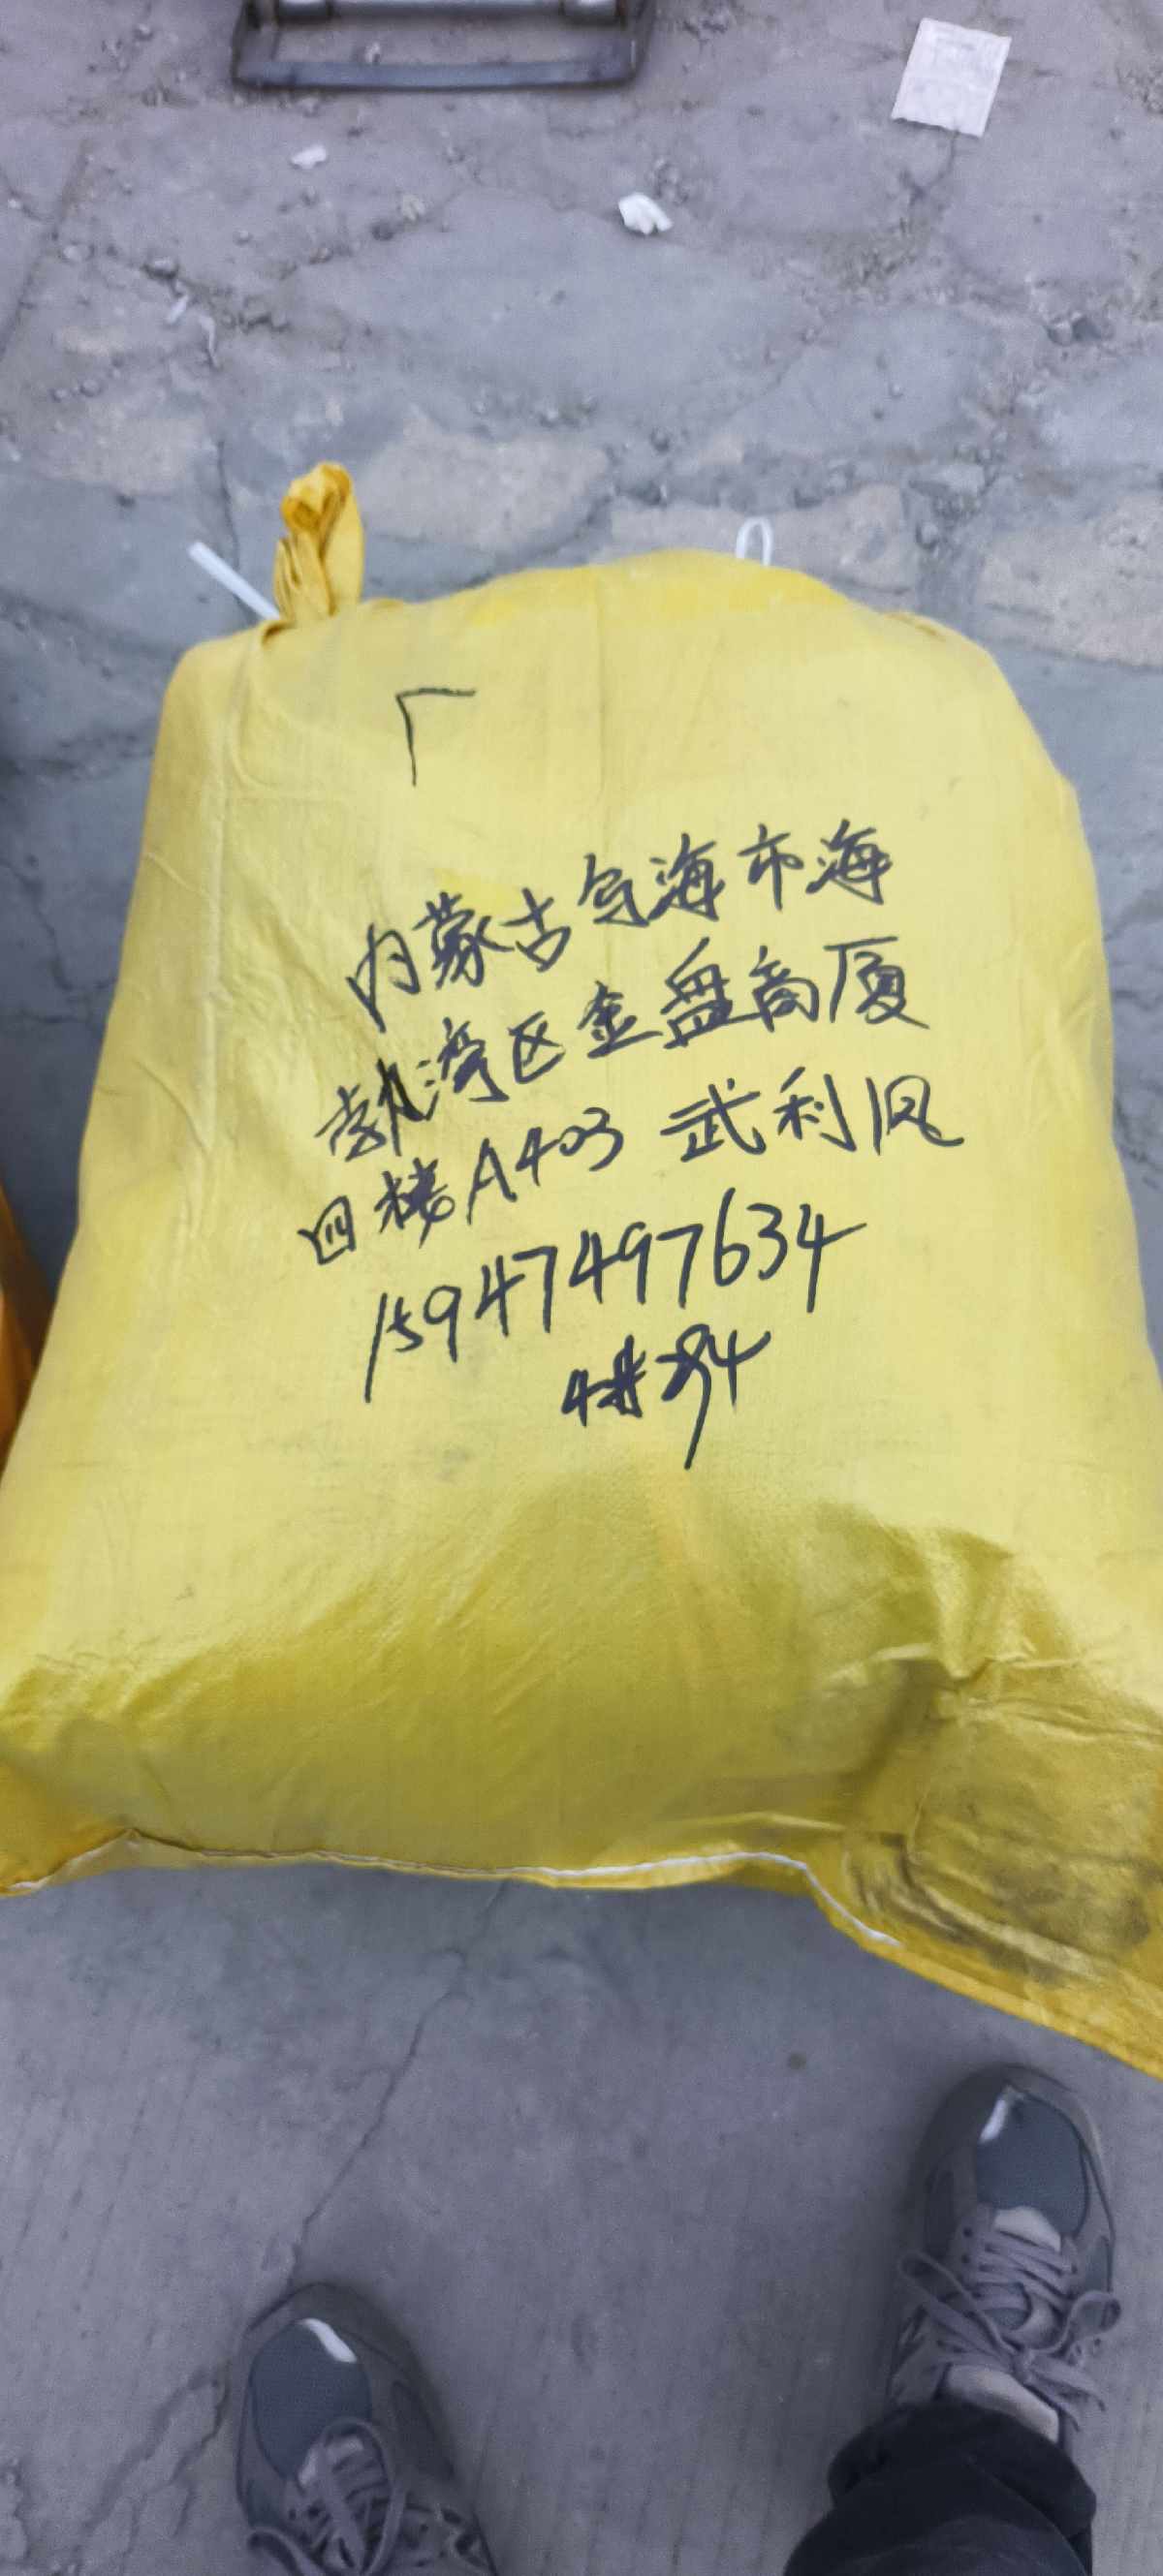 内蒙古乌海市海
勃湾区金盘商厦
四楼A403 武利凤
15947497634